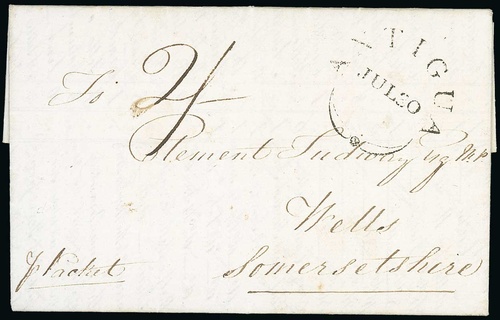 ANTIGUA
JUL 30
To 2/
Clement Tudway Esq M.P.
Wells
Somersetshire
p Packet